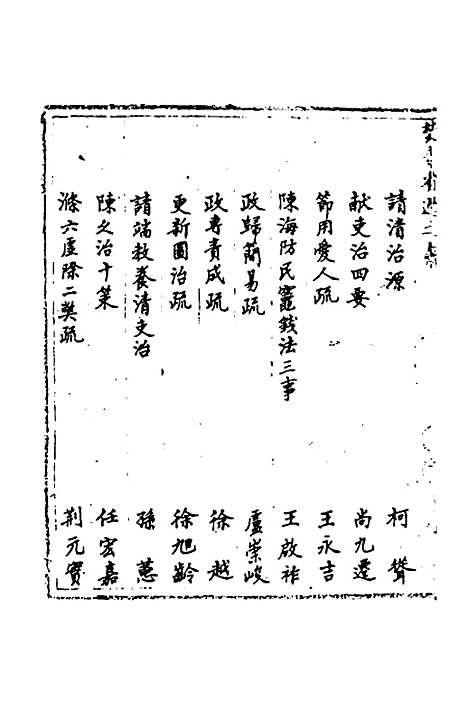 請清治源　柯聳
獻吏治四要　尚九遷
節用愛人疏　王永吉
陳海防民竈錢法三事　王啟祚
政歸簡易疏　盧崇峻
政專責成疏　徐越
更新圖治疏　徐旭齡
請端教養清吏治　孫蕙
陳久治十策　任宏嘉
滌六虛除二獘疏　荆元實